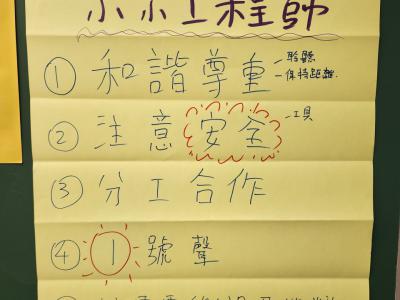 小小工程師
① 和諧尊重 -聆聽 -保持距離.
② 注意安全 -工具
③ 分工合作
④ 1 號聲